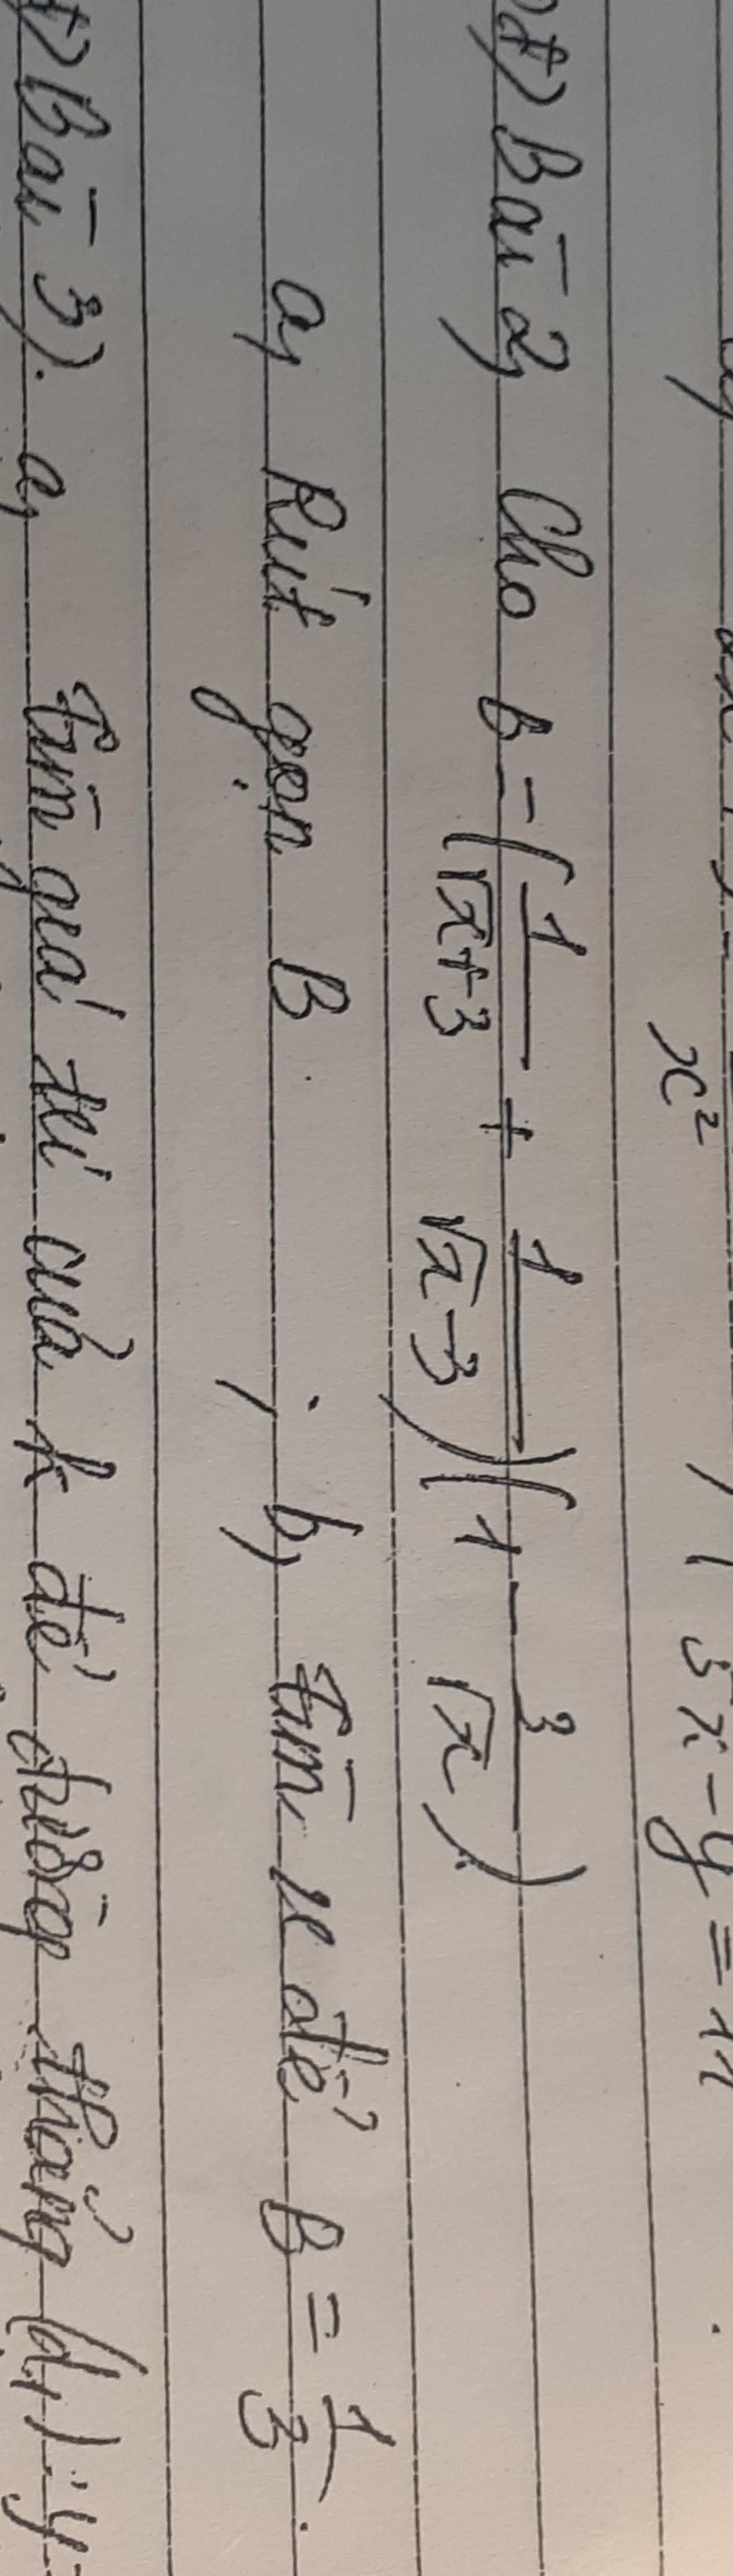 x² 3x - y = 11
đ) Bài 2, Cho B = (1/(√x+3) + 1/(√x-3))(1 - 3/√x).
a, Rút gọn B. ; b, tìm x để B = 1/3.
đ) Bài 3). a, tìm giá trị của k để đường thẳng (d₁): y =